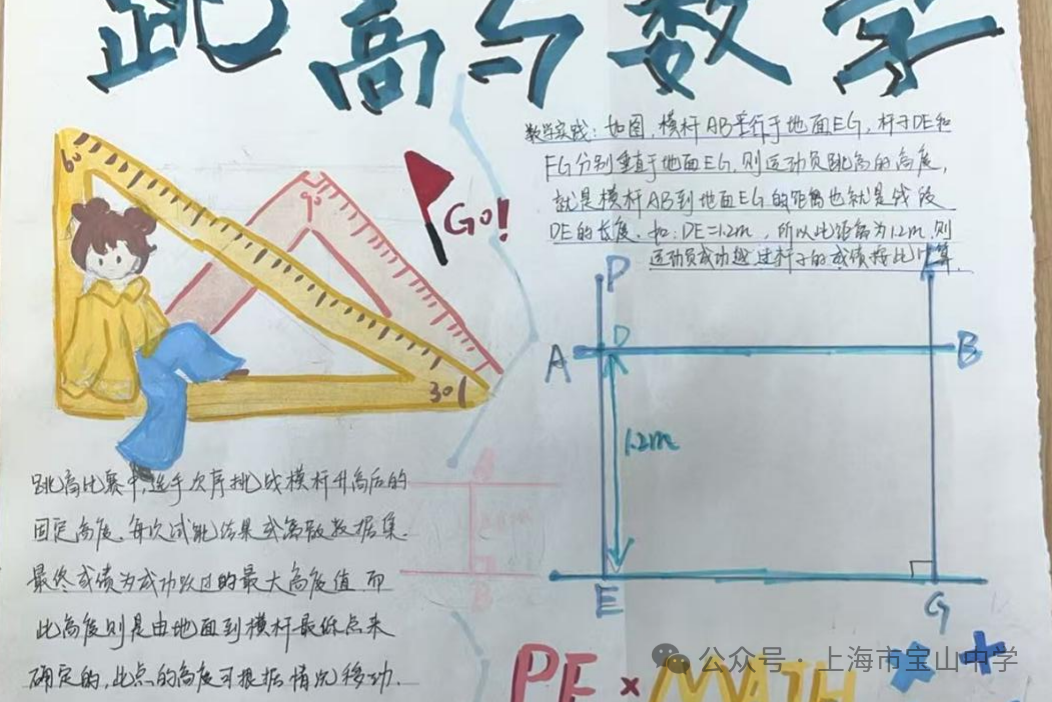 跳高与数学
数学实践：如图，横杆AB平行于地面EG，杆子DE和
FG分别垂直于地面EG，则运动员跳高的高度，
就是横杆AB到地面EG的距离也就是线段
DE的长度．如：DE=1.2m，所以此距离为1.2m，则
运动员成功越过杆子的成绩按此计算．
Go!
60
90
30
P
F
A
D
B
1.2m
E
G
跳高比赛中，选手次序挑战横杆升高后的
固定高度．每次试跳结果成离散数据集．
最终成绩为成功跃过的最大高度值．而
此高度则是由地面到横杆最低点来
确定的，此点的高度可根据情况移动．
A
B
PE × MATH
公众号 · 上海市宝山中学